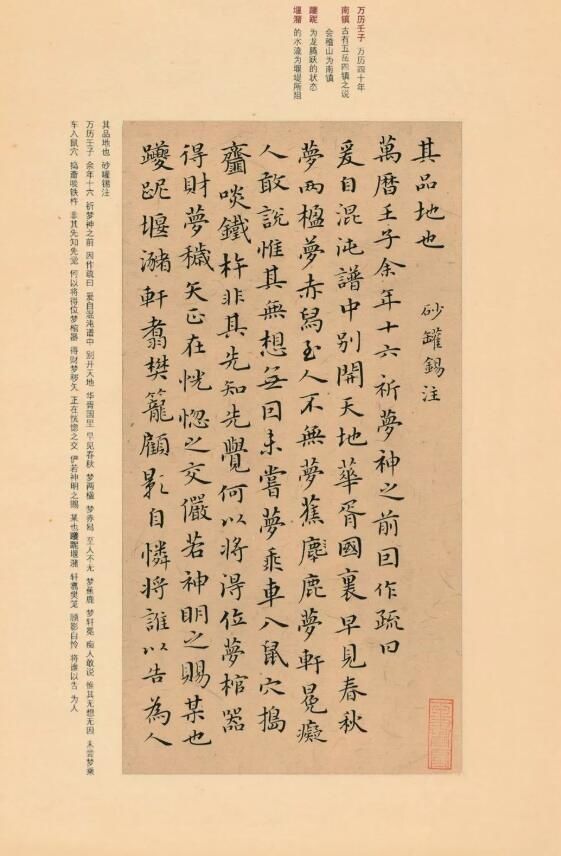 万历壬子 万历四十年
南镇 古有五岳四镇之说
会稽山为南镇
躨跜 为龙腾跃的状态
堰潴 的水流为堰堤所阻
其品地也 砂罐錫注
萬曆壬子余年十六祈夢神之前囙作疏曰
爰自混沌譜中別開天地華胥國裏早見春秋
夢兩楹夢赤舄至人不無夢蕉麈鹿夢軒冕癡
人敢說惟其無想無囙未嘗夢乘車入鼠穴搗
齏啖鐵杵非其先知先覺何以將得位夢棺器
得財夢穢矢正在恍惚之交儼若神明之賜某也
躨跜堰潴軒翥樊籠顧影自憐將誰以告為人
其品地也 砂罐锡注
万历壬子 余年十六 祈梦神之前 因作疏曰 爰自混沌谱中 别开天地 华胥国里 早见春秋 梦两楹 梦赤舄 至人不无 梦蕉鹿 梦轩冕 痴人敢说 惟其无想无因 未尝梦乘
车入鼠穴 捣齑啖铁杵 非其先知先觉 何以将得位梦棺器 得财梦秽矢 正在恍惚之交 俨若神明之赐 某也躨跜堰潴 轩翥樊笼 顾影自怜 将谁以告 为人